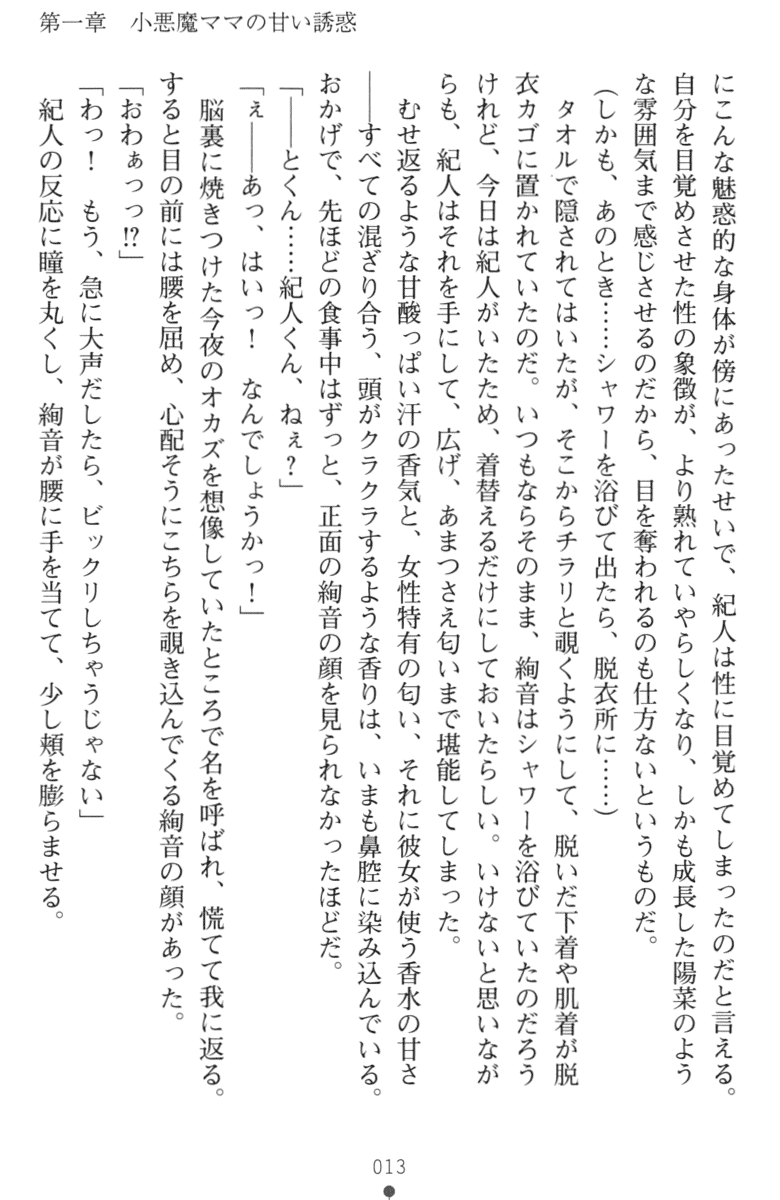 第一章　小悪魔ママの甘い誘惑
にこんな魅惑的な身体が傍にあったせいで、紀人は性に目覚めてしまったのだと言える。
自分を目覚めさせた性の象徴が、より熟れていやらしくなり、しかも成長した陽菜のよう
な雰囲気まで感じさせるのだから、目を奪われるのも仕方ないというものだ。
（しかも、あのとき……シャワーを浴びて出たら、脱衣所に……）
　タオルで隠されてはいたが、そこからチラリと覗くようにして、脱いだ下着や肌着が脱
衣カゴに置かれていたのだ。いつもならそのまま、絢音はシャワーを浴びていたのだろう
けれど、今日は紀人がいたため、着替えるだけにしておいたらしい。いけないと思いなが
らも、紀人はそれを手にして、広げ、あまつさえ匂いまで堪能してしまった。
　むせ返るような甘酸っぱい汗の香気と、女性特有の匂い、それに彼女が使う香水の甘さ
――すべての混ざり合う、頭がクラクラするような香りは、いまも鼻腔に染み込んでいる。
おかげで、先ほどの食事中はずっと、正面の絢音の顔を見られなかったほどだ。
「――とくん……紀人くん、ねぇ？」
「ぇ――あっ、はいっ！　なんでしょうかっ！」
　脳裏に焼きつけた今夜のオカズを想像していたところで名を呼ばれ、慌てて我に返る。
すると目の前には腰を屈め、心配そうにこちらを覗き込んでくる絢音の顔があった。
「おわぁっっ!?」
「わっ！　もう、急に大声だしたら、ビックリしちゃうじゃない」
　紀人の反応に瞳を丸くし、絢音が腰に手を当てて、少し頬を膨らませる。
013